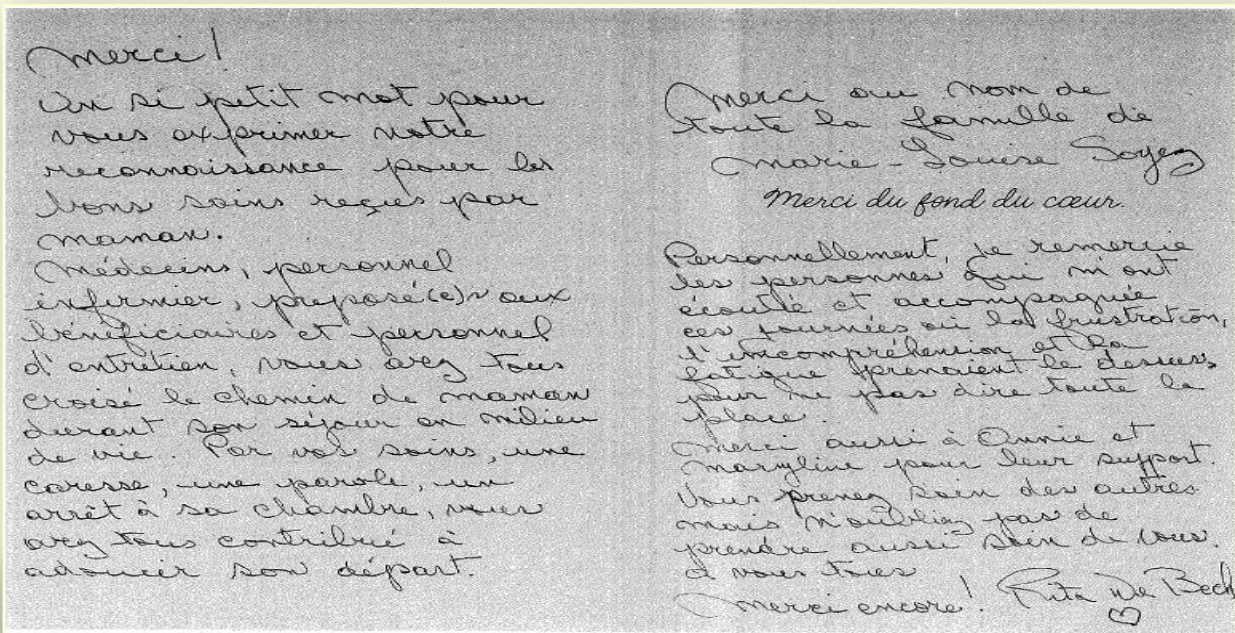 Merci!
Un si petit mot pour
vous exprimer notre
reconnaissance pour les
bons soins reçus par
maman.
Médecins, personnel
infirmier, préposé(e)s aux
bénéficiaires et personnel
d'entretien, vous avez tous
croisé le chemin de maman
durant son séjour en milieu
de vie. Par vos soins, une
caresse, une parole, un
arrêt à sa chambre, vous
avez tous contribué à
adoucir son départ.
Merci au nom de
toute la famille de
Marie-Louise Soyez
Merci du fond du cœur.
Personnellement, je remercie
les personnes qui m'ont
écouté et accompagnée
ces journées où la frustration,
l'incompréhension et la
fatigue prenaient le dessus,
pour ne pas dire toute la
place.
Merci aussi à Annie et
Maryline pour leur support.
Vous prenez soin des autres
mais n'oubliez pas de
prendre aussi soin de vous.
à vous tous
Merci encore! Rita De